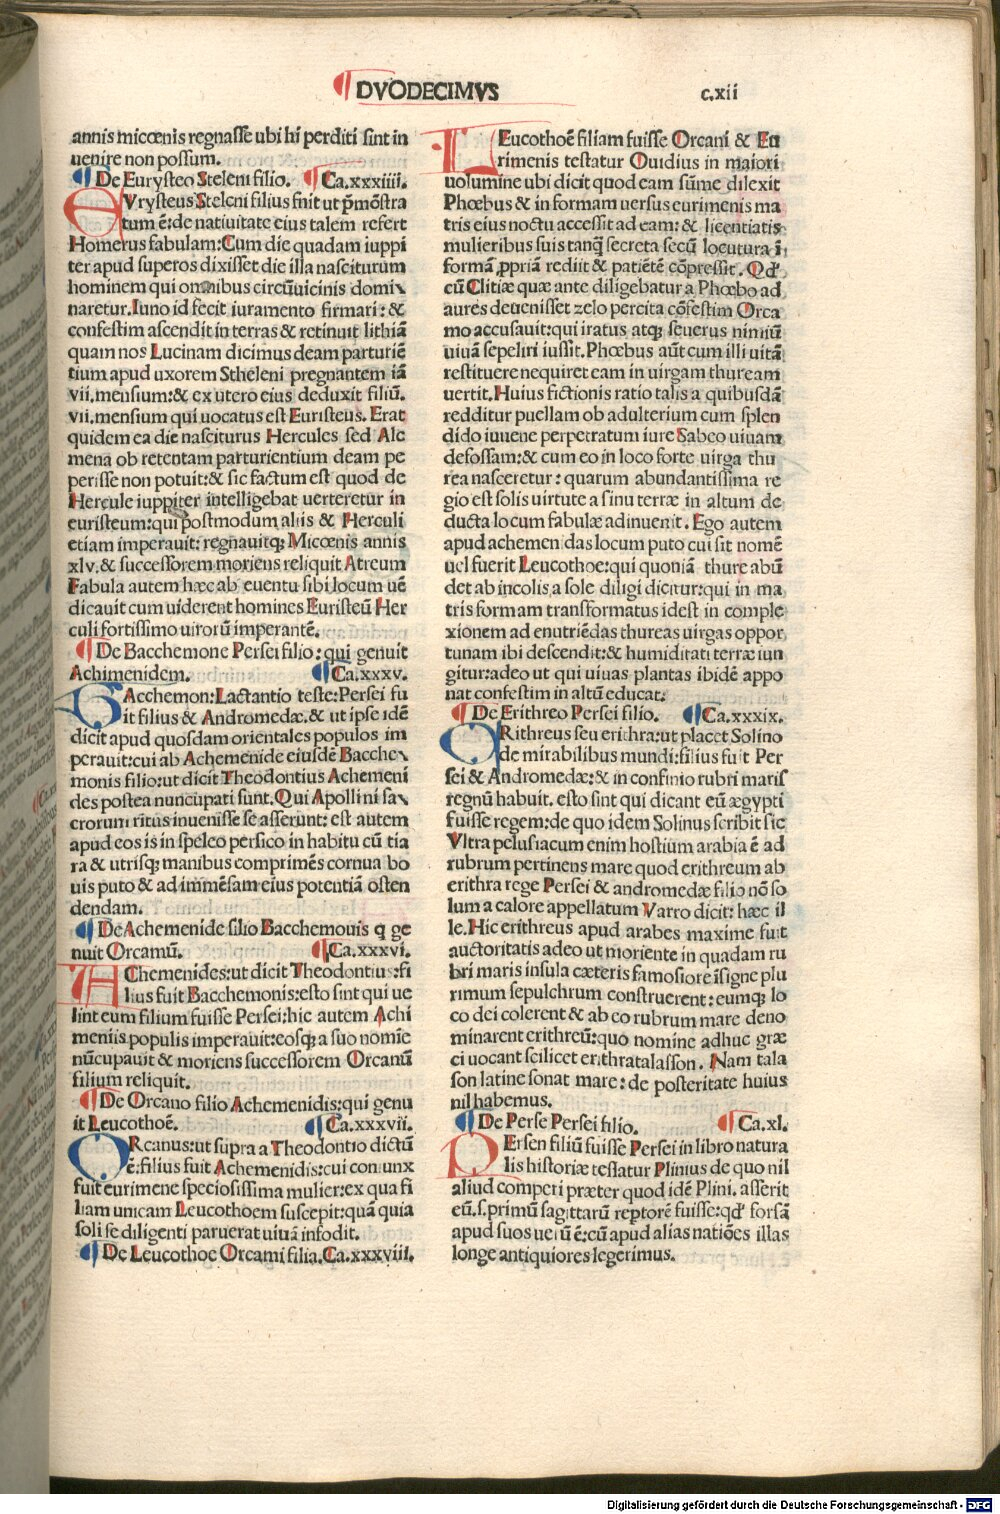 ¶ DVODECIMVS
c.xii
annis micœnis regnasse ubi hi perditi sint in
uenire non possum.
¶ De Eurysteo Steleni filio. ¶ Ca.xxxiiii.
EVrysteus Steleni filius fuit ut p̄mōstra
tum ē: de natiuitate eius talem refert
Homerus fabulam: Cum die quadam iuppi
ter apud superos dixisset die illa nasciturum
hominem qui omnibus circūuicinis domi
naretur. Iuno id fecit iuramento firmari: &
confestim ascendit in terras & retinuit lithiā
quam nos Lucinam dicimus deam parturiē
tium apud uxorem Stheleni pregnantem iā
vii. mensium: & ex utero eius deduxit filiū.
vii. mensium qui uocatus est Euristeus. Erat
quidem ea die nasciturus Hercules sed Alc
mena ob retentam parturientium deam pe
perisse non potuit: & sic factum est quod de
Hercule iuppiter intelligebat uerteretur in
euristeum: qui postmodum aliis & Herculi
etiam imperauit: regnauitq; Micœnis annis
xlv. & successorem moriens reliquit Atreum
Fabula autem hæc ab euentu sibi locum uē
dicauit cum uiderent homines Euristeū Her
culi fortissimo uirorū imperantē.
¶ De Bacchemone Persei filio: qui genuit
Achimenidem. ¶ Ca.xxxv.
BAcchemon: Lactantio teste: Persei fu
it filius & Andromedæ. & ut ipse idē
dicit apud quosdam orientales populos im
perauit: cui ab Achemenide eiusdē Bacche
monis filio: ut dicit Theodontius Achemeni
des postea nuncupati sunt. Qui Apollini sa
crorum ritus inuenisse se asserunt: est autem
apud eos is in speleo persico in habitu cū tia
ra & utrisq; manibus comprimēs cornua bo
uis puto & ad immēsam eius potentiā osten
dendam.
¶ De Achemenide filio Bacchemouis q ge
nuit Orcamū. ¶ Ca.xxxvi.
AChemenides: ut dicit Theodontius: fi
lius fuit Bacchemonis: esto sint qui ue
lint eum filium fuisse Persei: hic autem Achi
meniis populis imperauit: eosq; a suo nomīe
nūcupauit & moriens successorem Orcanū
filium reliquit.
¶ De Orcano filio Achemenidis: qui genu
it Leucothoē. ¶ Ca.xxxvii.
ORcanus: ut supra a Theodontio dictū
ē: filius fuit Achemenidis: cui coniunx
fuit eurimene speciosissima mulier: ex qua fi
liam unicam Leucothoem suscepit: quā quia
soli se diligenti paruerat uiuā infodit.
¶ De Leucothoe Orcami filia. Ca.xxxviii.
LEucothoē filiam fuisse Orcani & Eu
rimenis testatur Ouidius in maiori
uolumine ubi dicit quod eam sūme dilexit
Phœbus & in formam uersus eurimenis ma
tris eius noctu accessit ad eam: & licentiatis
mulieribus suis tanq̄ secreta secū locutura ī
formā ꝓpriā rediit & patiētē cōpressit. Qd'
cū Clitiæ quæ ante diligebatur a Phœbo ad
aures deuenisset zelo percita cōfestim Orca
mo accusauit: qui iratus atq; seuerus nimiū
uiuā sepeliri iussit. Phœbus aūt cum illi uitā
restituere nequiret eam in uirgam thuream
uertit. Huius fictionis ratio talis a quibusdā
redditur puellam ob adulterium cum splen
dido iuuene perpetratum iure Sabeo uiuam
defossam: & cum eo in loco forte uirga thu
rea nasceretur: quarum abundantissima re
gio est solis uirtute a sinu terræ in altum de
ducta locum fabulæ adinuenit. Ego autem
apud achemenidas locum puto cui sit nomē
uel fuerit Leucothoe: qui quoniā thure abū
det ab incolis a sole diligi dicitur: qui in ma
tris formam transformatus idest in comple
xionem ad enutriēdas thureas uirgas oppor
tunam ibi descendit: & humiditati terræ iun
gitur: adeo ut qui uiuas plantas ibidē appo
nat confestim in altū educat.
¶ De Erithreo Persei filio. ¶ Ca.xxxix.
ORithreus seu erithra: ut placet Solino
de mirabilibus mundi: filius fuit Per
sei & Andromedæ: & in confinio rubri maris
regnū habuit. esto sint qui dicant eū ægypti
fuisse regem: de quo idem Solinus scribit sic
Vltra pelusiacum enim hostium arabia ē ad
rubrum pertinens mare quod erithreum ab
erithra rege Persei & andromedæ filio nō so
lum a calore appellatum Varro dicit: hæc il
le. Hic erithreus apud arabes maxime fuit
auctoritatis adeo ut moriente in quadam ru
bri maris insula cæteris famosiore īsigne plu
rimum sepulchrum construerent: eumq; lo
co dei colerent & ab eo rubrum mare deno
minarent erithreū: quo nomine adhuc græ
ci uocant scilicet erithratalasson. Nam tala
son latine sonat mare: de posteritate huius
nil habemus.
¶ De Perse Persei filio. ¶ Ca.xl.
PErsen filiū fuisse Persei in libro natura
lis historiæ testatur Plinius de quo nil
aliud comperi præter quod idē Plini. asserit
eū. s. primū sagittarū reptorē fuisse: qd' forsā
apud suos uerū ē: cū apud alias natiōes illas
longe antiquiores legerimus.
Digitalisierung gefördert durch die Deutsche Forschungsgemeinschaft - DFG